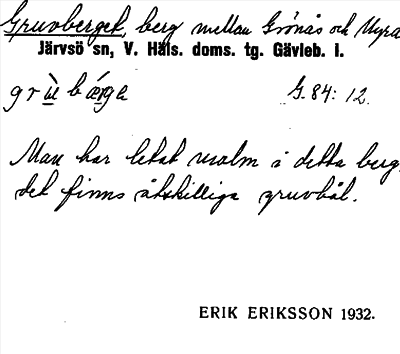 Gruvberget, berg mellan Grönås och Nyra
Järvsö sn, V. Häls. doms. tg. Gävleb. l.
grùbærga G. 84: 12.
Man har letat malm å detta berg,
det finns åtskilliga gruvhål.
ERIK ERIKSSON 1932.